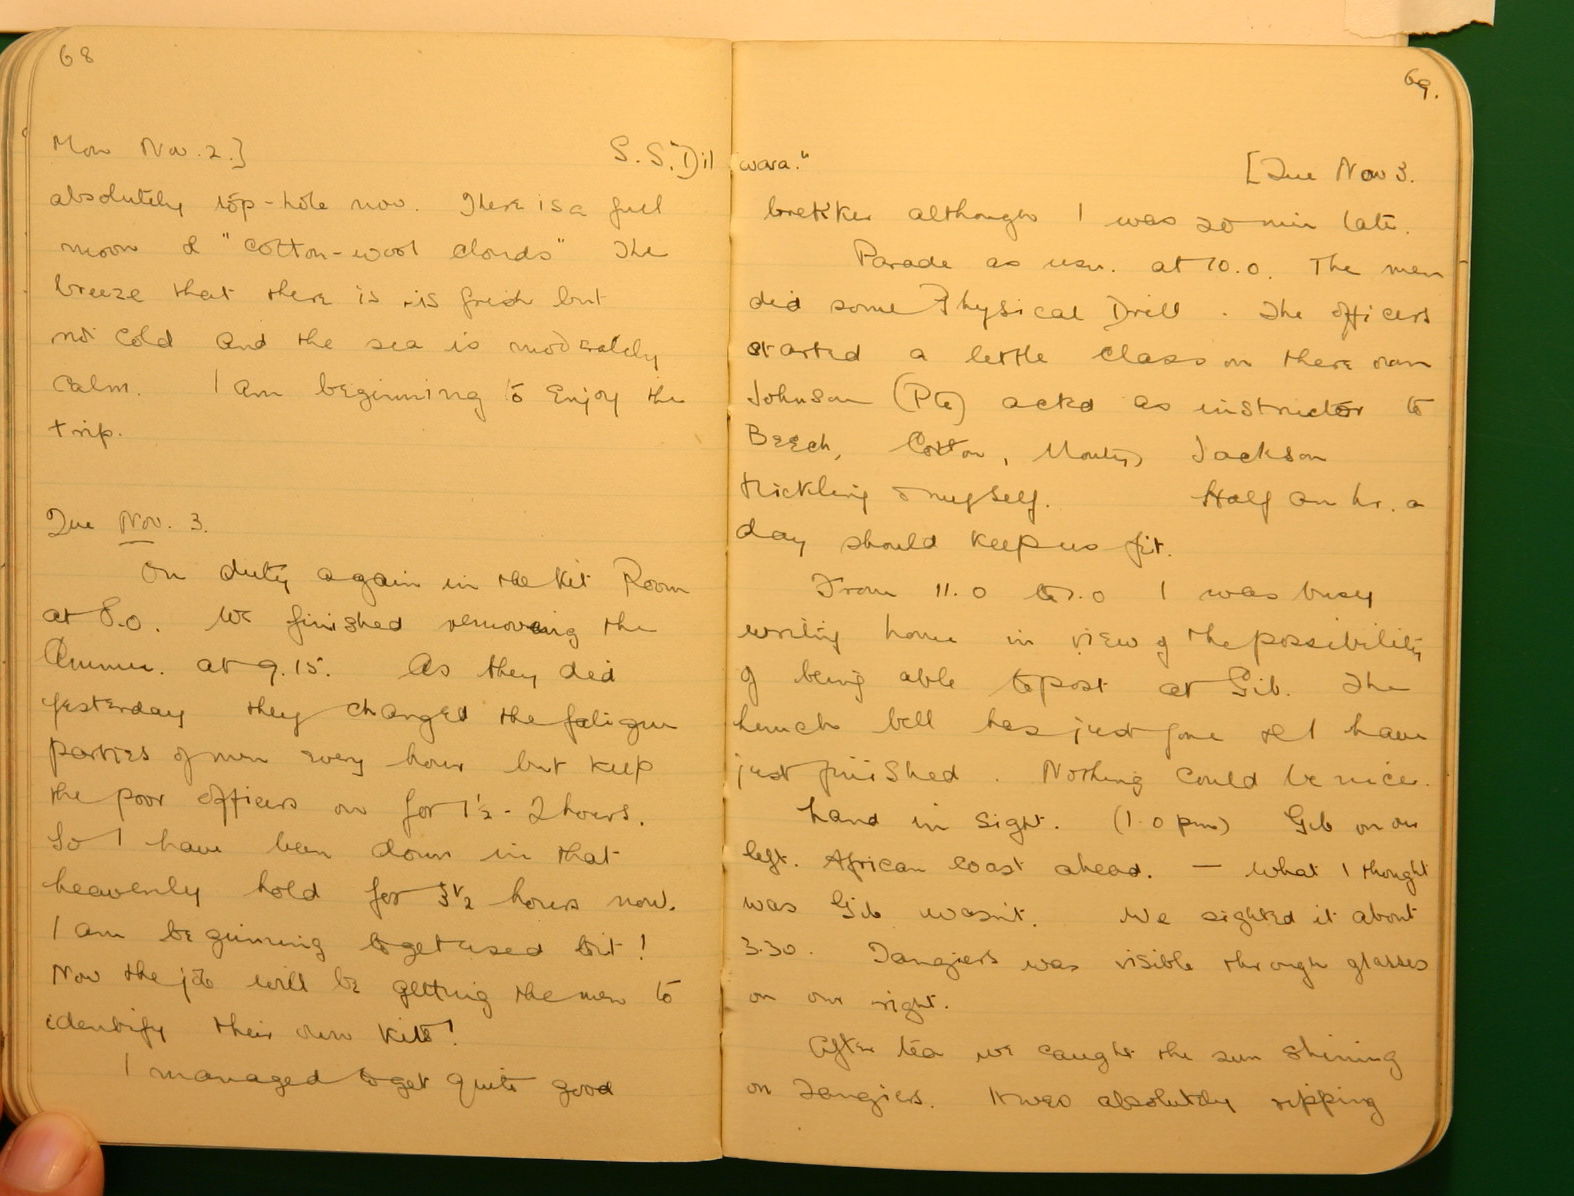 68
Mon Nov. 2.]
S.S. "Dil
absolutely top-hole now. There is a full
moon & "cotton-wool clouds" The
breeze that there is is fresh but
not cold and the sea is moderately
calm. I am beginning to enjoy the
trip.
Tue Nov. 3.
On duty again in the Kit Room
at 8.0. We finished removing the
Ammu. at 9.15. As they did
yesterday they changed the fatigue
parties of men every hour but keep
the poor officers on for 1½ - 2 hours.
So I have been down in that
heavenly hold for 3½ hours now.
I am beginning to get used to it!
Now the job will be getting the men to
identify their own kits!
I managed to get quite good
69.
wara."
[Tue Nov 3.
brekker although I was 20 min late.
Parade as usu. at 10.0. The men
did some Physical Drill. The officers
started a little class on there own
Johnson (Pte) acted as instructor to
Beech, Cotton, Monty, Jackson
Hickling & myself. Half an hr. a
day should keep us fit.
From 11.0 to 1.0 I was busy
writing home in view of the possibility
of being able to post at Gib. The
lunch bell has just gone & I have
just finished. Nothing could be nicer.
Land in sight. (1.0 pm) Gib on our
left. African coast ahead. — what I thought
was Gib wasn't. We sighted it about
3.30. Tangiers was visible through glasses
on our right.
After tea we caught the sun shining
on Tangiers. It was absolutely ripping